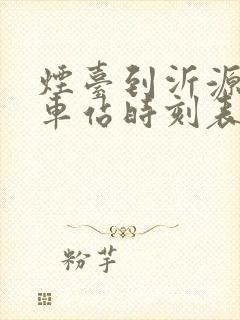 煙臺到沂源
車估時刻表
粉芋